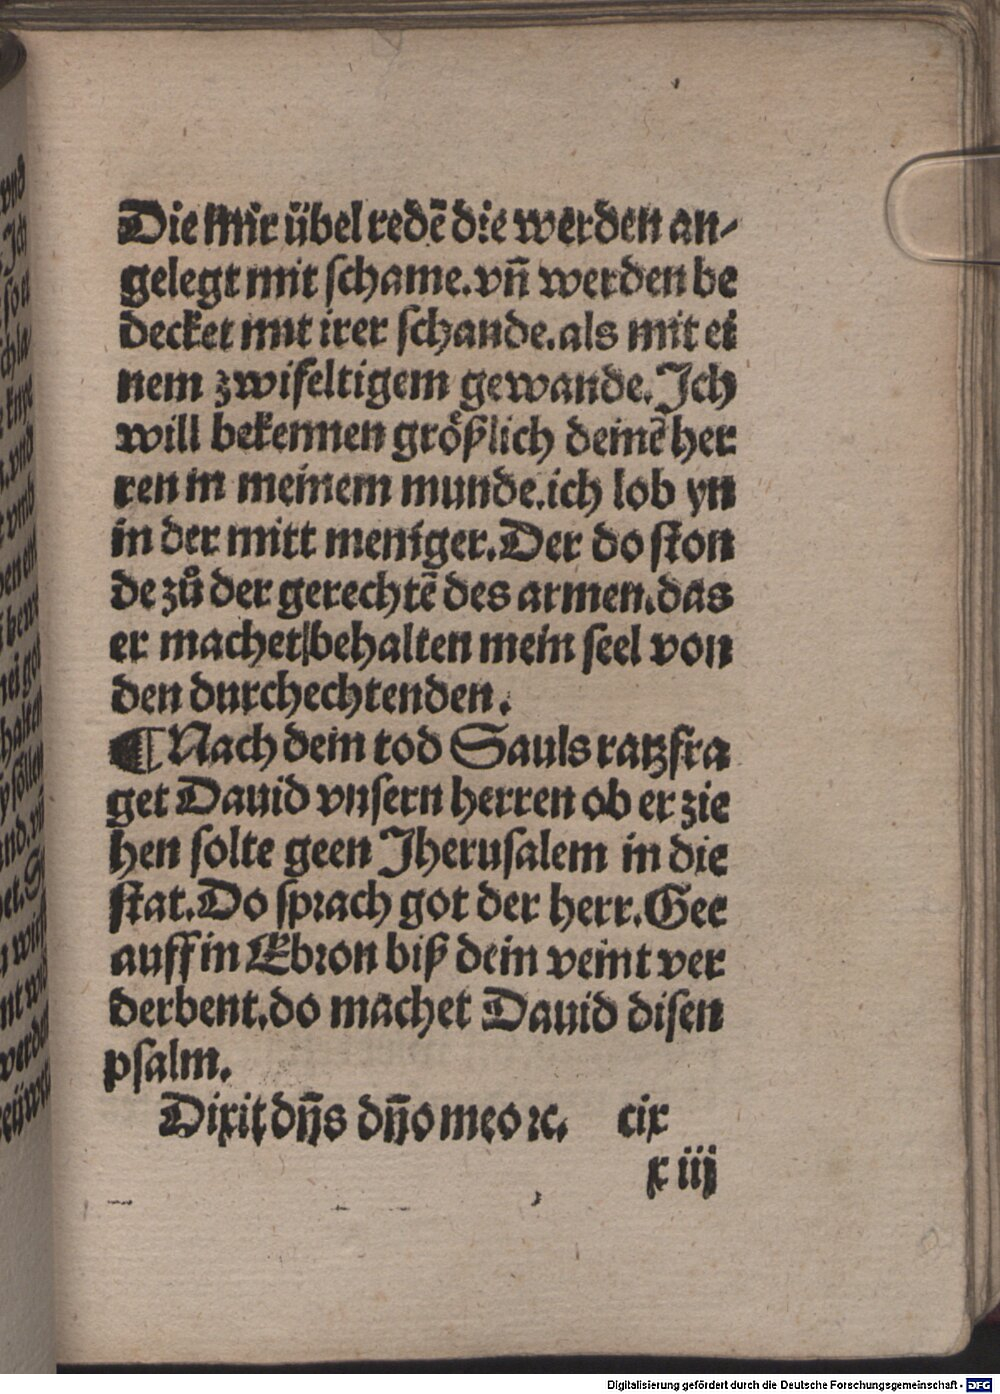 Die mir übel redē die werden an-
gelegt mit schame. vñ werden be
decket mit irer schande. als mit ei
nem zwifeltigem gewande. Ich
will bekennen größlich deinē her
ren in meinem munde. ich lob yn
in der mitt meniger. Der do ston
de zů der gerechtē des armen. das
er machet behalten mein seel von
den durchechtenden.
¶ Nach dem tod Sauls ratzfra
get Dauid vnsern herren ob er zie
hen solte geen Jherusalem in die
stat. Do sprach got der herr. Gee
auff in Ebron biß dein veint ver
derbent. do machet Dauid disen
psalm.
Dixit dñs dño meo ⁊c. cix
x iij
Digitalisierung gefördert durch die Deutsche Forschungsgemeinschaft - DFG